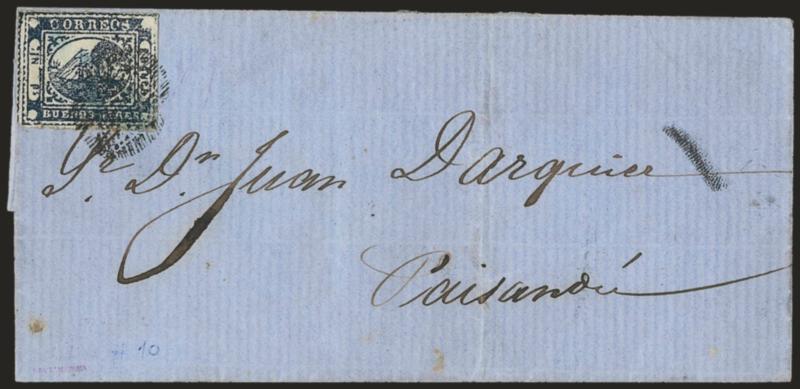 CORREOS
BUENOS AIRES
Sr. Dn Juan Darquier
Paisandú
# 10